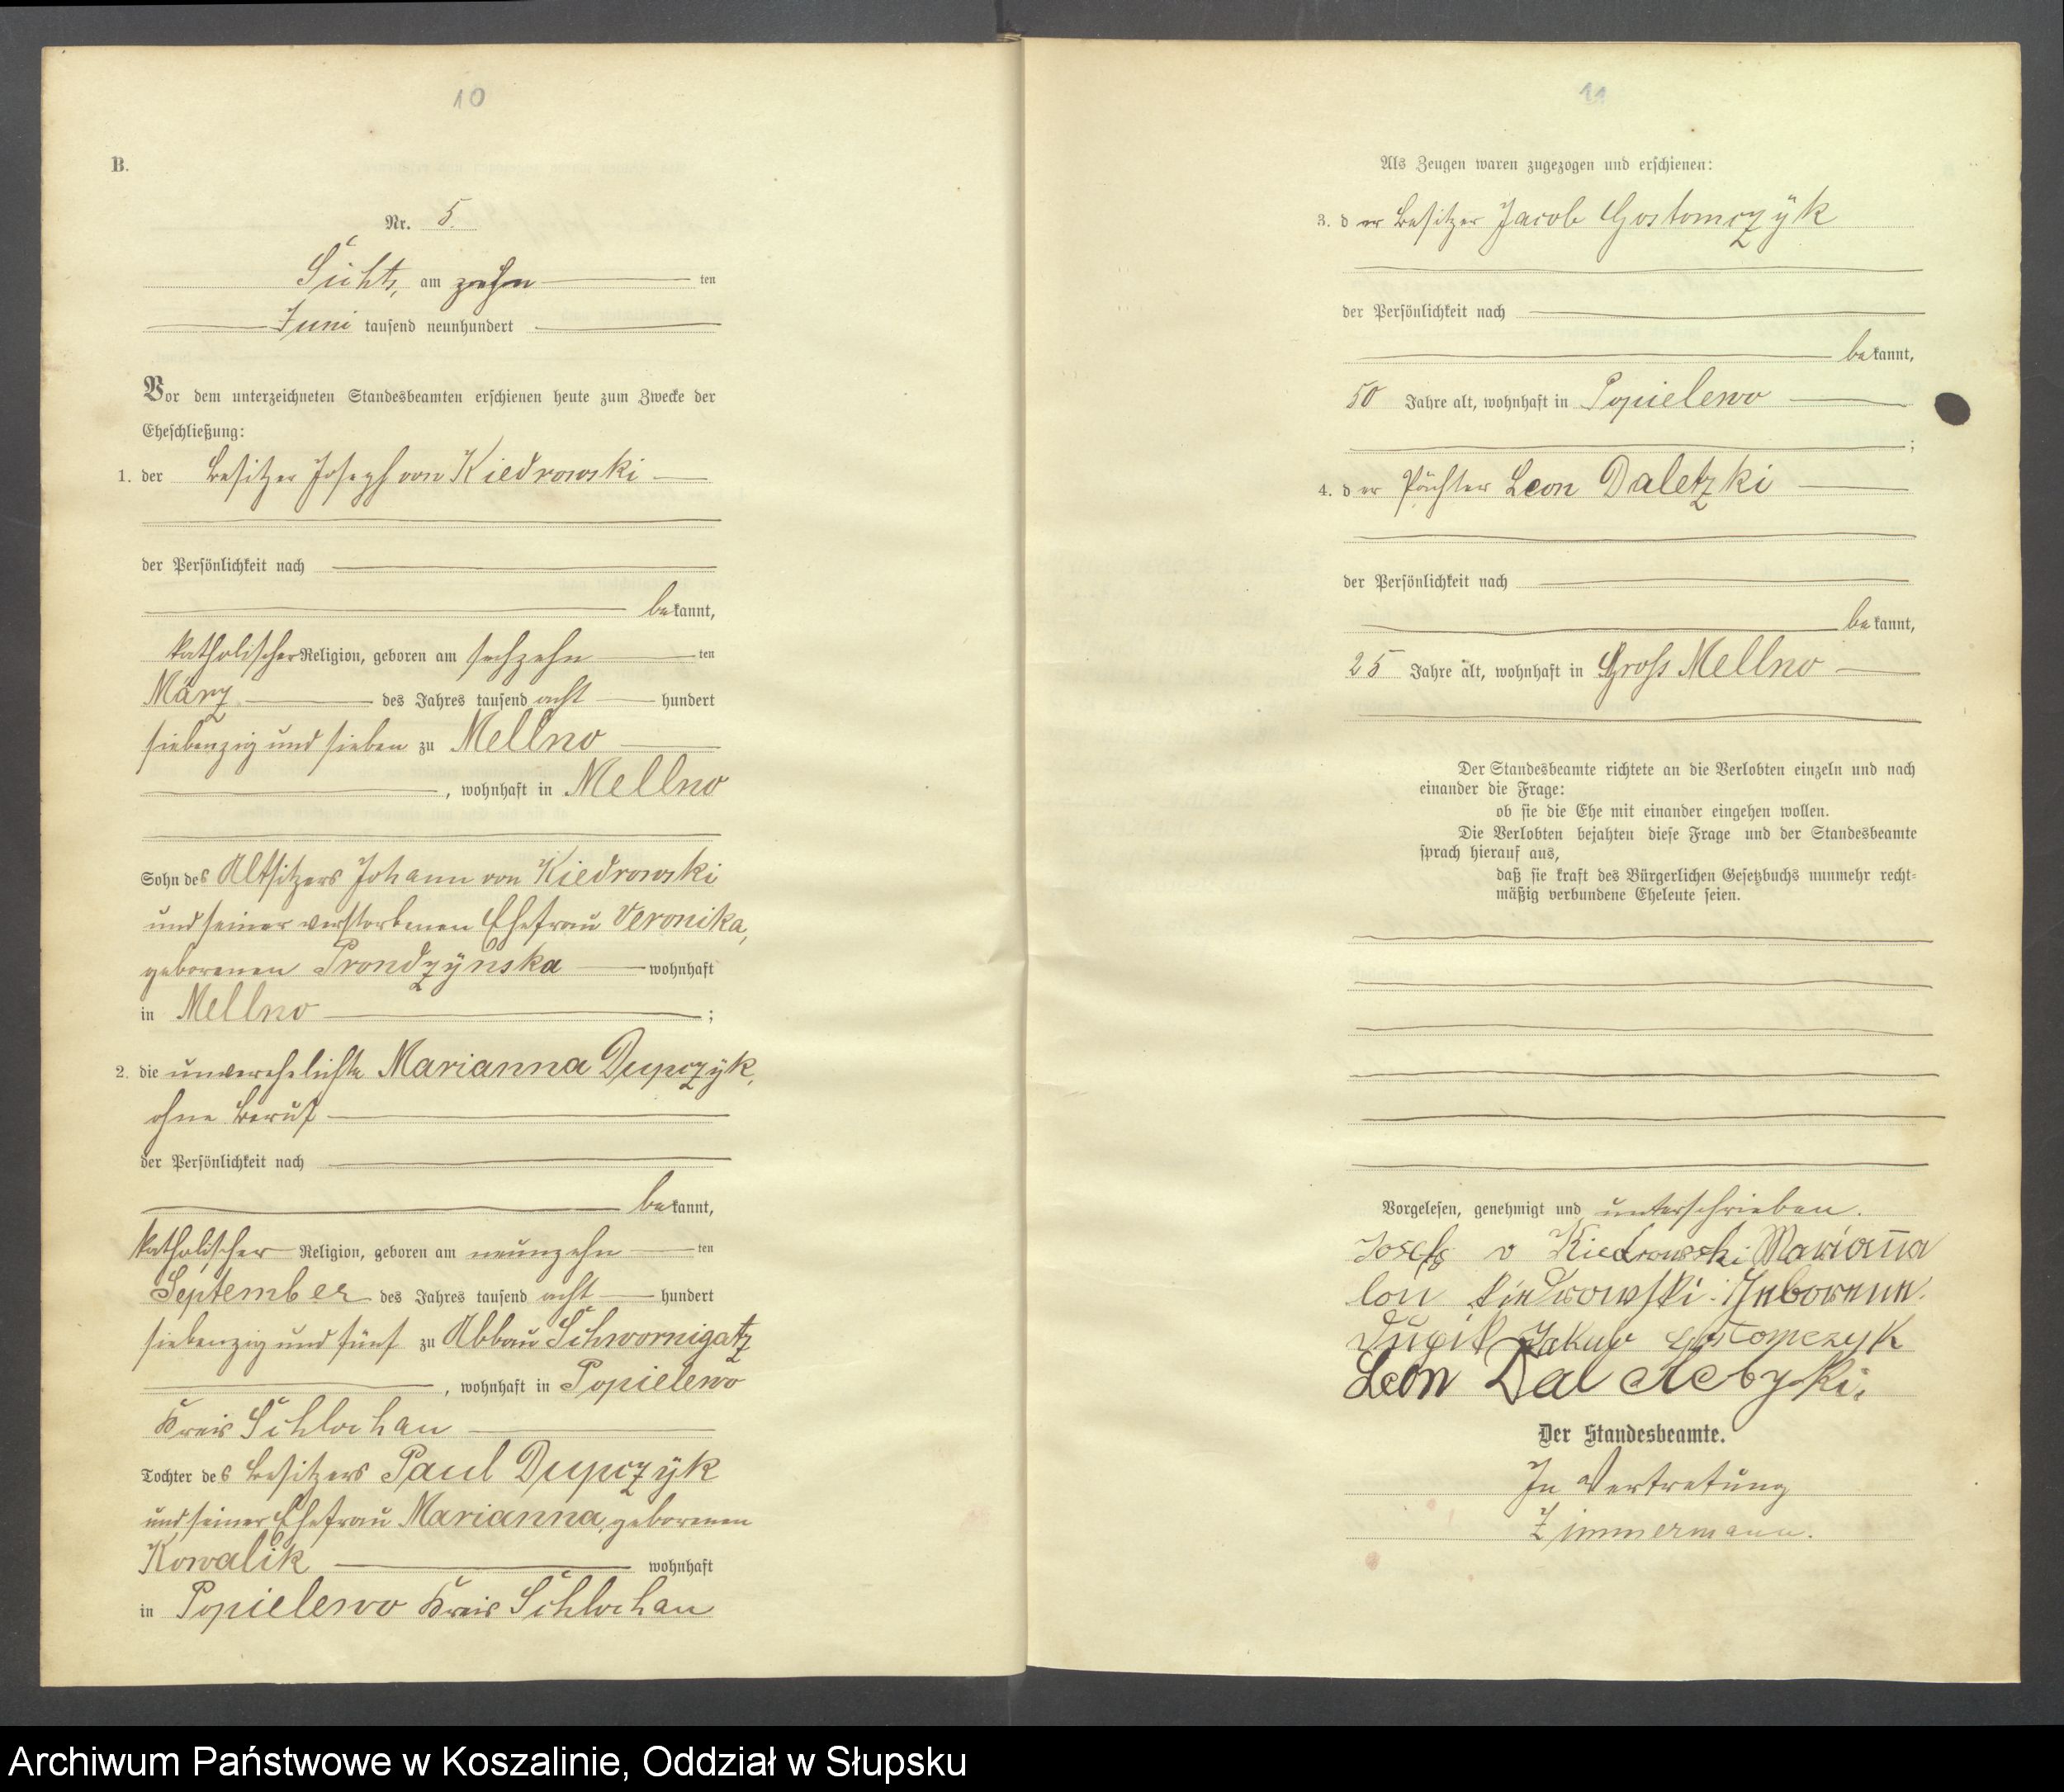 10
B.
Nr. 5.
Sicht, am zehn ten
Juni tausend neunhundert
Vor dem unterzeichneten Standesbeamten erschienen heute zum Zwecke der
Eheschließung:
1. der Besitzer Joseph von Kiedrowski
der Persönlichkeit nach
bekannt,
katholischer Religion, geboren am sechzehn ten
März des Jahres tausend acht hundert
siebenzig und sieben zu Mellno
, wohnhaft in Mellno
Sohn des Altsitzers Johann von Kiedrowski
und seiner verstorbenen Ehefrau Veronika,
geborenen Prondzÿnska wohnhaft
in Mellno ;
2. die unverehelichte Marianna Dupczÿk,
ohne Beruf
der Persönlichkeit nach
bekannt,
katholischer Religion, geboren am neunzehn ten
September des Jahres tausend acht hundert
siebenzig und fünf zu Abbau Schwornigatz
, wohnhaft in Popielewo
Kreis Schlochau
Tochter des Besitzers Paul Dupczÿk
und seiner Ehefrau Marianna, geborenen
Kowalik wohnhaft
in Popielewo Kreis Schlochau
11
Als Zeugen waren zugezogen und erschienen:
3. der Besitzer Jacob Gostomczÿk
der Persönlichkeit nach
bekannt,
50 Jahre alt, wohnhaft in Popielewo
;
4. der Pächter Leon Daletzki
der Persönlichkeit nach
bekannt,
25 Jahre alt, wohnhaft in Gross Mellno
Der Standesbeamte richtete an die Verlobten einzeln und nach
einander die Frage:
ob sie die Ehe mit einander eingehen wollen.
Die Verlobten bejahten diese Frage und der Standesbeamte
sprach hierauf aus,
daß sie kraft des Bürgerlichen Gesetzbuchs nunmehr recht-
mäßig verbundene Eheleute seien.
Vorgelesen, genehmigt und unterschrieben.
Josef v Kiedrowski Marianna
von Kiedrowski Geborene
Jakub Gostomczyk
Leon
Der Standesbeamte.
In Vertretung
Zimmermann.
Archiwum Państwowe w Koszalinie, Oddział w Słupsku